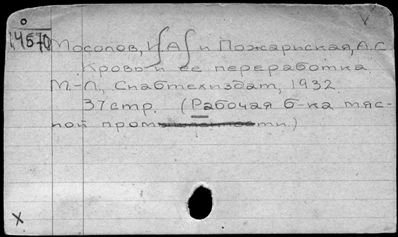 14570
Мосолов, И. А. и Пожариская, Л. С.
Кровь и ее переработка
М-Л, Снабтехиздат, 1932.
37 стр. (Рабочая б-ка мяс-
ной промышленности.)